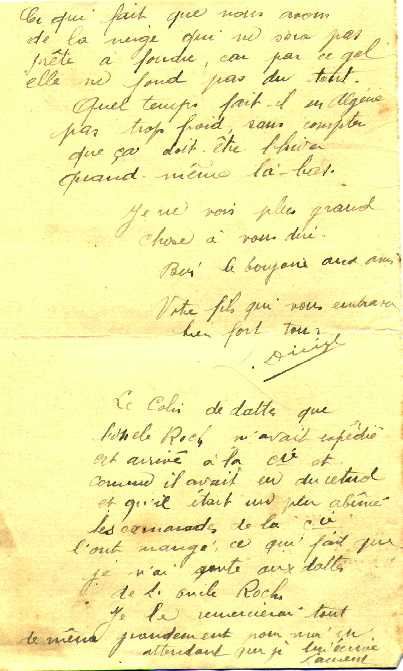 Ce qui fait que nous avons
de la neige qui ne sera pas
prête à fondre, car par ce gel
elle ne fond pas du tout.
Quel temps fait-il en Algérie
pas trop froid, sans compter
que ça doit être l'hiver
quand-même là-bas.
Je ne vois plus grand
chose à vous dire.
le bonjour aux amis
Votre fils qui vous embrasse
bien fort tous
Le Colis de dattes que
l'oncle Roch m'avait expédié
est arrivé à la Cie et
comme il avait un du retard
et qu'il était un peu abîmé
les camarades de la Cie
l'ont mangé, ce qui fait que
je n'ai goûté aux dattes
de l'oncle Roch.
Je le remercierai tout
de même grandement pour moi en
attendant que je lui écrive